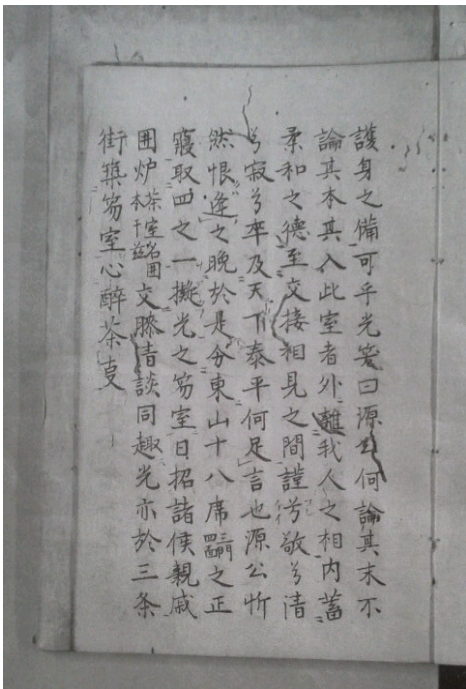 護身之備可乎光笑曰源公何論其末不
論其本其入此室者外離我人之相内蓄
柔和之德至交接相見之間謹兮敬兮清
兮寂兮卒及天下泰平何足言也源公忻
然恨逢之晩於是分東山十八席之正
寝取四之一擬光之笏室日招諸侯親戚
囲炉茶室名囲本于茲交膝清談同趣光亦於三条
街築笏室心酔茶事